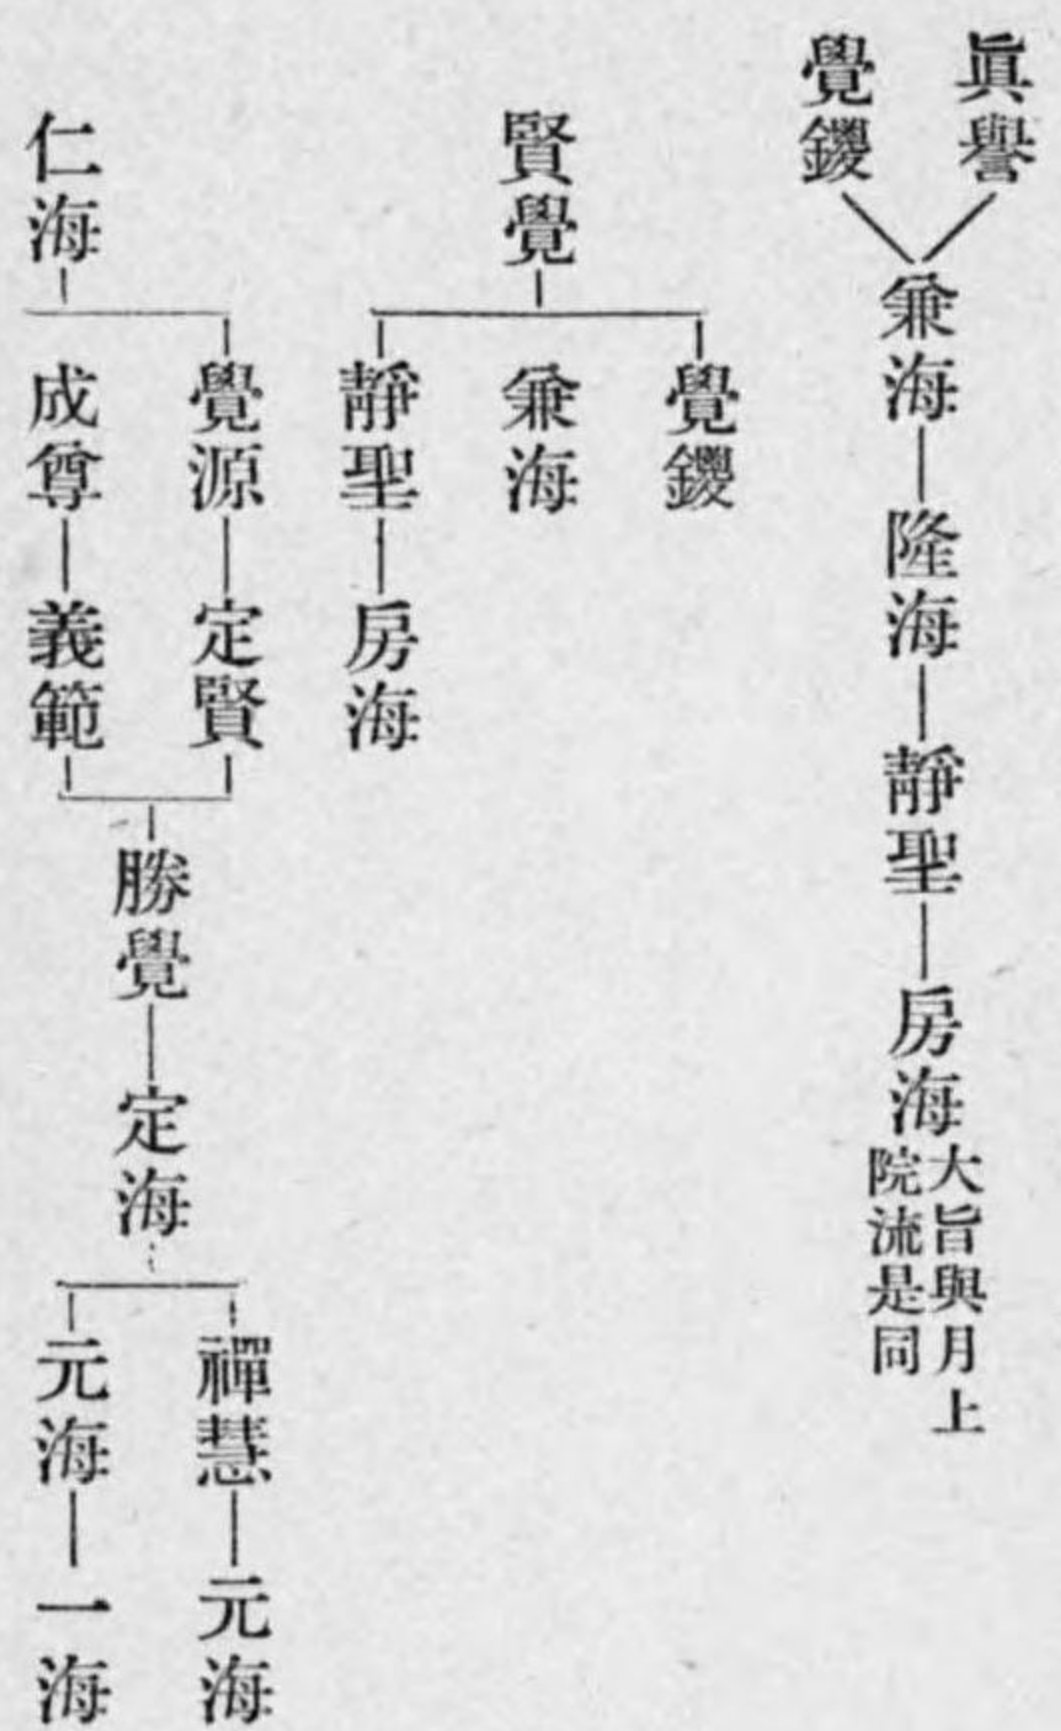 眞譽
覺鑁
兼海
隆海
靜聖
房海
大旨與月上
院流是同
賢覺
覺鑁
兼海
靜聖
房海
仁海
覺源
定賢
成尊
義範
勝覺
定海
禪慧
元海
元海
一海